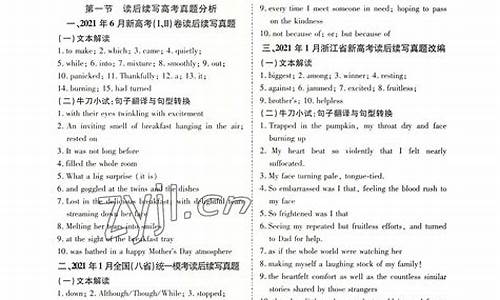 第一节 读后续写高考真题分析
一、2021 年 6 月新高考(Ⅰ,Ⅱ)卷读后续写真题
(一)文本解读
1. to make; 2. which; 3. care; 4. quietly;
5. while; 6. into; 7. mixture; 8. smoothly; 9. out;
10. panicked; 11. Thankfully; 12. a; 13. it;
14. burning; 15. had turned
(二)牛刀小试:句子翻译与句型转换
1. with their eyes twinkling with excitement
2. An inviting smell of breakfast hanging in the air;
rested on
3. It was not long before
4. filled the whole room
5. What a big surprise (it is)
6. and goggled at the twins and the dishes
7. Lost in the delicious breakfast, with delightful tears
streaming down her face
8. Melting her tears into smiles
9. at the sight of the breakfast tray
10. was bathed in a happy Mother's Day atmosphere
二、2021 年 1 月全国(八省)统一模考读后续写真题
(一)文本解读
1. down; 2. Although/Though/While; 3. stopped;
9. every time I meet someone in need; hoping to pass
on the kindness
10. not because of; or; but because of
三、2021 年 1 月浙江省新高考读后续写真题改编
(一)文本解读
1. biggest; 2. among; 3. winner; 4. resting;
5. against; 6. jammed; 7. excited; 8. fruitless;
9. brother's; 10. helpless
(二)牛刀小试:句子翻译与句型转换
1. Trapped in the pumpkin, my throat dry and face
burning up
2. My heart beat so violently that I felt nearly
suffocated.
3. My face turning pale, tongue-tied.
4. So embarrassed was I that, feeling the blood rush to
my face
5. So frightened was I that
6. Seeing my repeated but fruitless efforts, and turned
to Dad for help.
7. as if the whole world were watching her
8. making myself a laughing stock of my family!
9. the heartfelt comfort as well as the countless similar
stories shared by those strangers
zyjl.cn